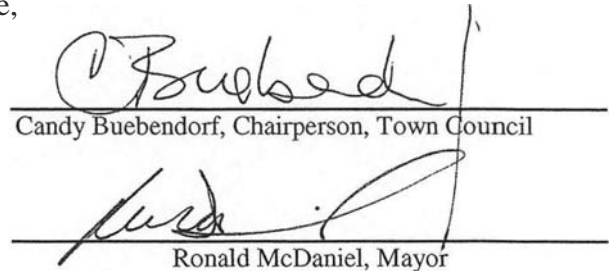 e,
C Buebend
Candy Buebendorf, Chairperson, Town Council
Ronald McDaniel, Mayor